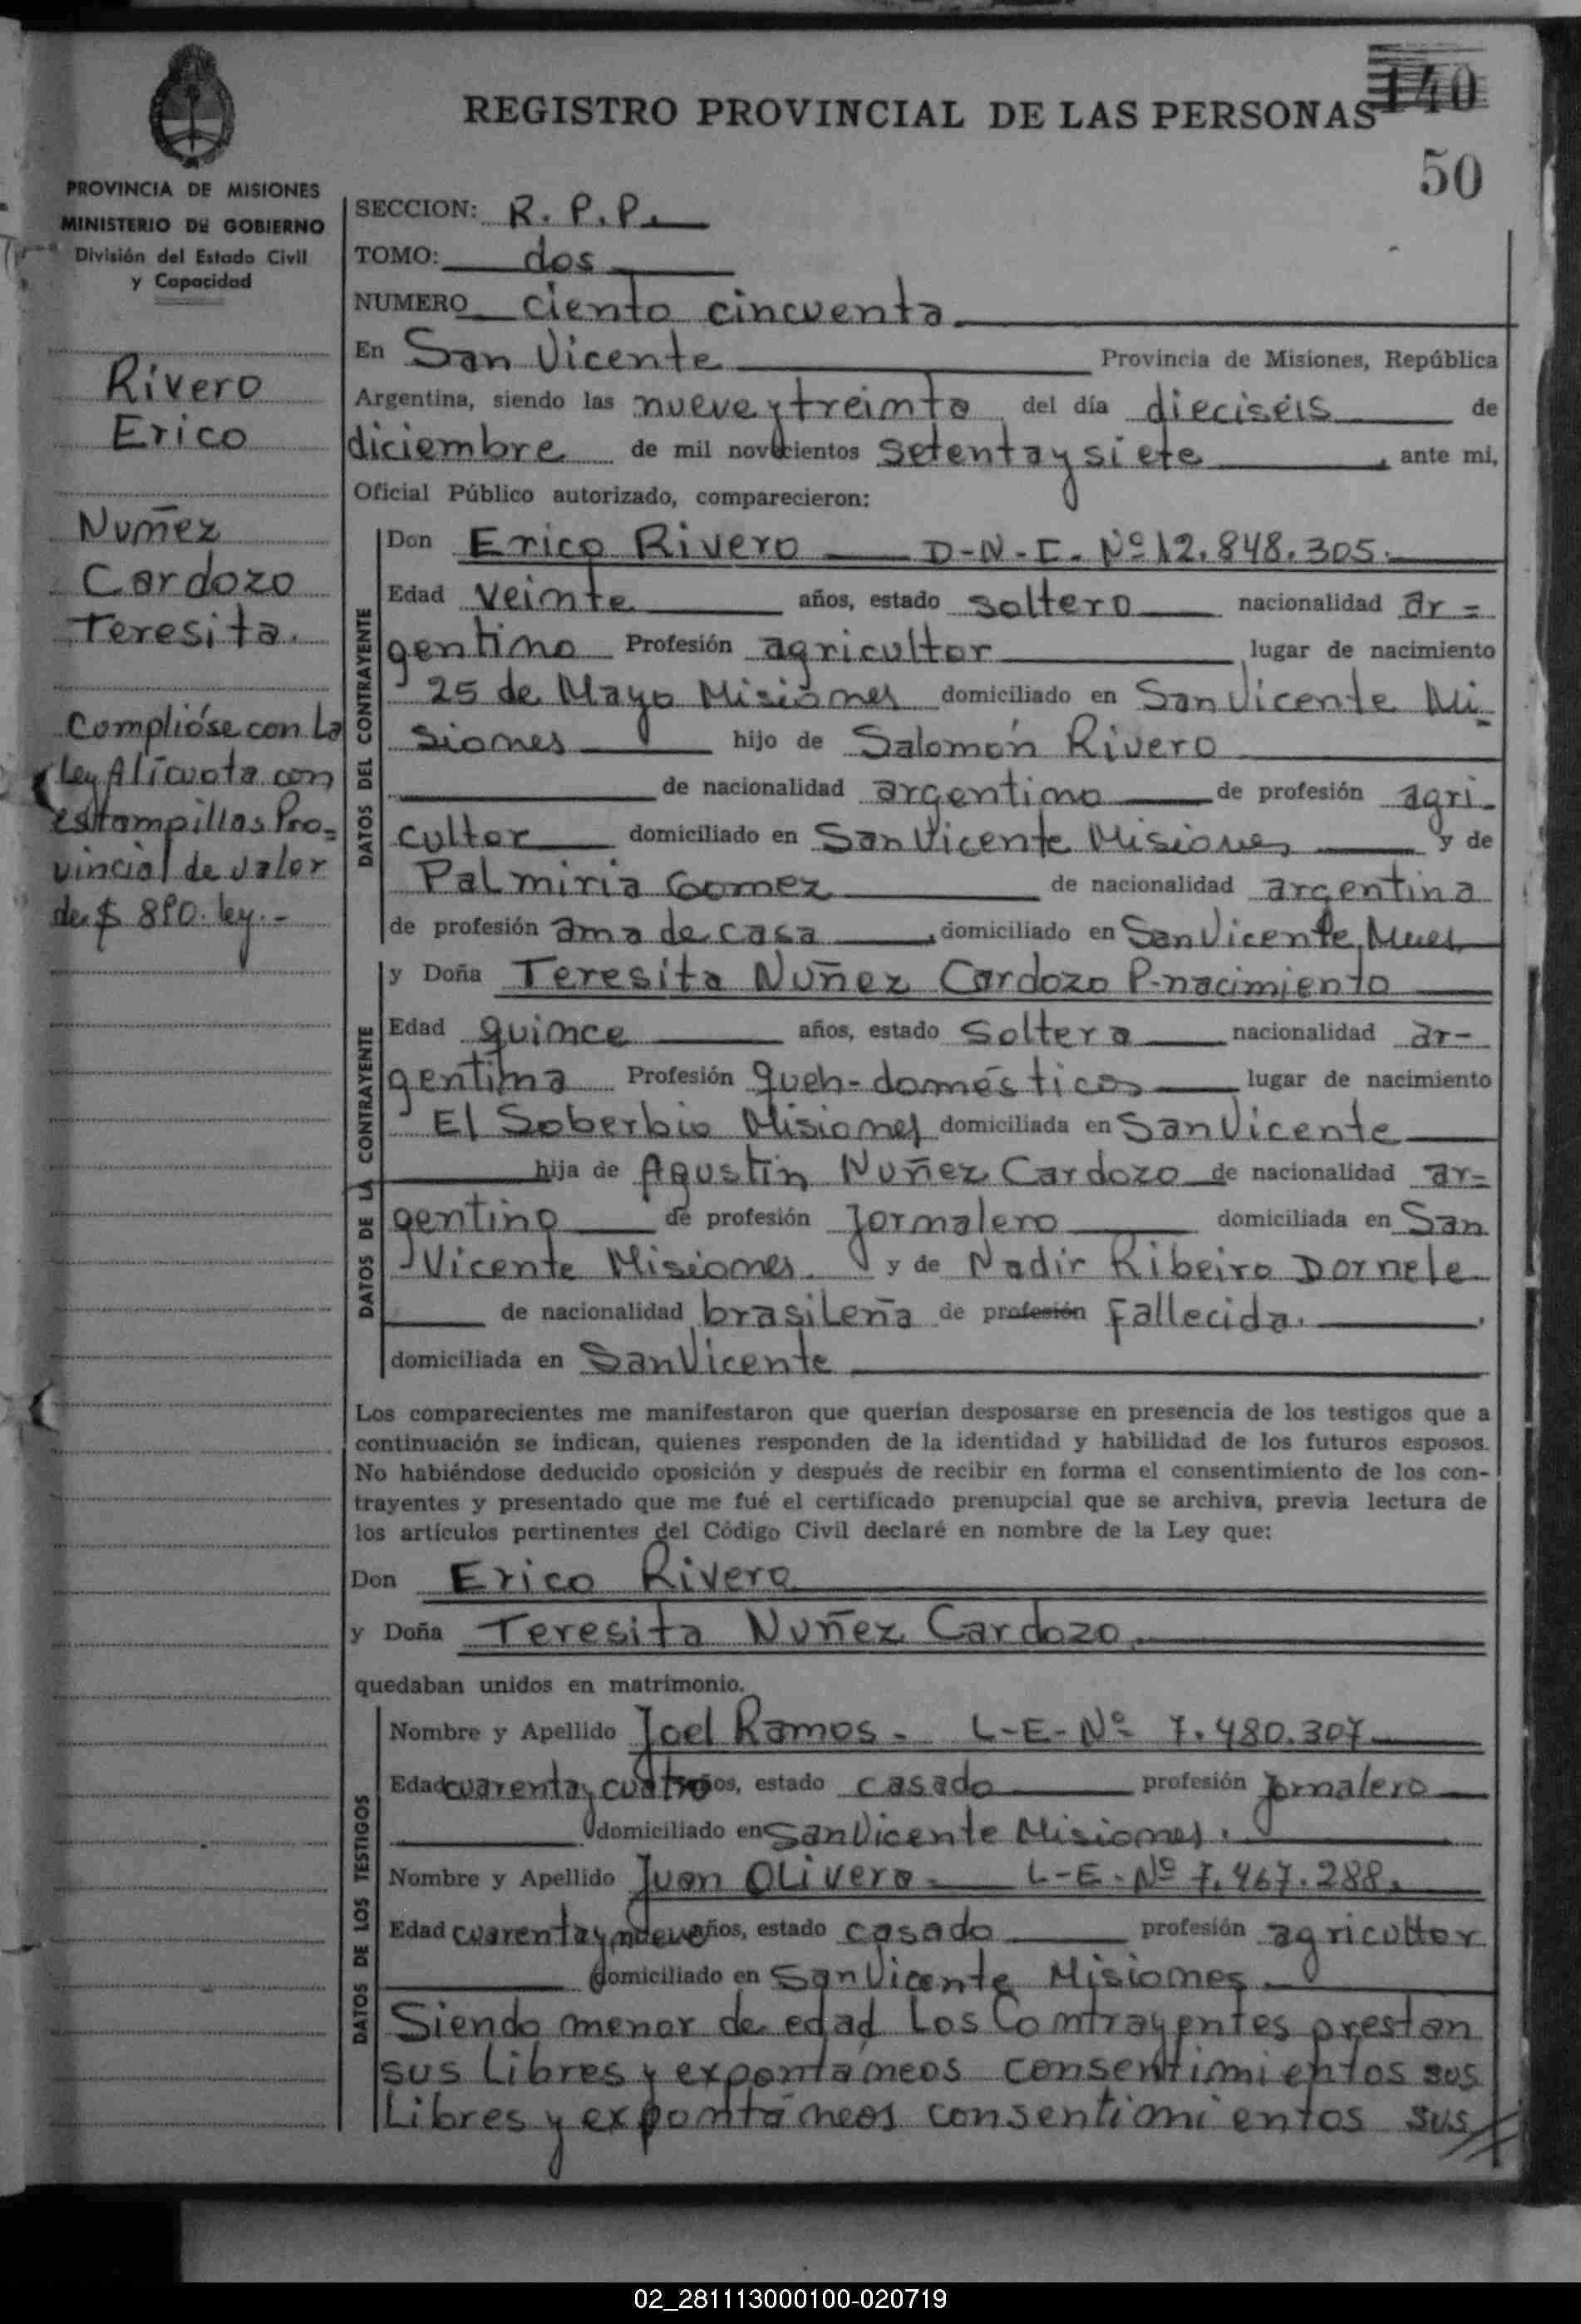 REGISTRO PROVINCIAL DE LAS PERSONAS
140
50
PROVINCIA DE MISIONES
MINISTERIO DE GOBIERNO
División del Estado Civil
y Capacidad
Rivero
Erico
Nuñez
Cardozo
Teresita.
Complióse con La
Ley Alícuota con
estampillas Pro=
vincial de valor
de $ 890. ley.-
SECCION: R. P. P.
TOMO: dos
NUMERO ciento cincuenta
En San Vicente Provincia de Misiones, República
Argentina, siendo las nueve y treinta del día dieciséis de
diciembre de mil novecientos setenta y siete, ante mi,
Oficial Público autorizado, comparecieron:
DATOS DEL CONTRAYENTE
Don Erico Rivero D-N-I. Nº 12.848.305.
Edad veinte años, estado soltero nacionalidad ar=
gentino Profesión agricultor lugar de nacimiento
25 de Mayo Misiones domiciliado en San Vicente Mi-
siones hijo de Salomón Rivero
de nacionalidad argentino de profesión agri-
cultor domiciliado en San Vicente Misiones y de
Palmiria Gomez de nacionalidad argentina
de profesión ama de casa, domiciliado en San Vicente,
DATOS DE LA CONTRAYENTE
y Doña Teresita Nuñez Cardozo P-nacimiento
Edad quince años, estado soltera nacionalidad ar-
gentina Profesión queh-domésticos lugar de nacimiento
El Soberbio Misiones domiciliada en San Vicente
hija de Agustín Nuñez Cardozo de nacionalidad ar=
gentino de profesión Jornalero domiciliada en San
Vicente Misiones. y de Nadir Ribeiro Dornele
de nacionalidad brasileña de profesión Fallecida.
domiciliada en San Vicente
Los comparecientes me manifestaron que querían desposarse en presencia de los testigos que a
continuación se indican, quienes responden de la identidad y habilidad de los futuros esposos.
No habiéndose deducido oposición y después de recibir en forma el consentimiento de los con-
trayentes y presentado que me fué el certificado prenupcial que se archiva, previa lectura de
los artículos pertinentes del Código Civil declaré en nombre de la Ley que:
Don Erico Rivero
y Doña Teresita Nuñez Cardozo.
quedaban unidos en matrimonio.
DATOS DE LOS TESTIGOS
Nombre y Apellido Joel Ramos - L-E-Nº 7.480.307
Edad cuarenta y cuatro años, estado casado profesión Jornalero
domiciliado en San Vicente Misiones.
Nombre y Apellido Juan Olivera - L-E-Nº 7.467.288.
Edad cuarenta y nueve años, estado casado profesión agricultor
domiciliado en San Vicente Misiones
Siendo menor de edad Los Contrayentes prestan
sus Libres y expontáneos consentimientos sus
Libres y expontáneos consentimientos sus
02_281113000100-020719